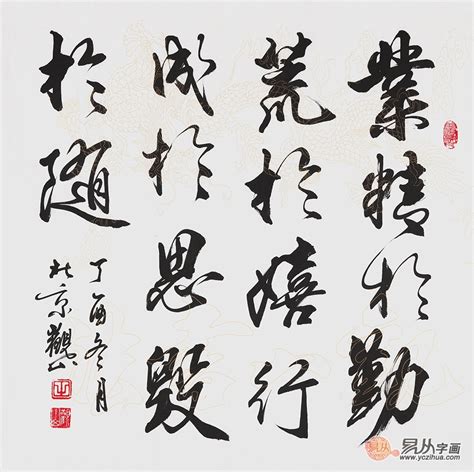 業精於勤
荒於嬉行
成於思毀
於隨
丁酉冬月
北京觀山
易从字画
www.yczihua.com